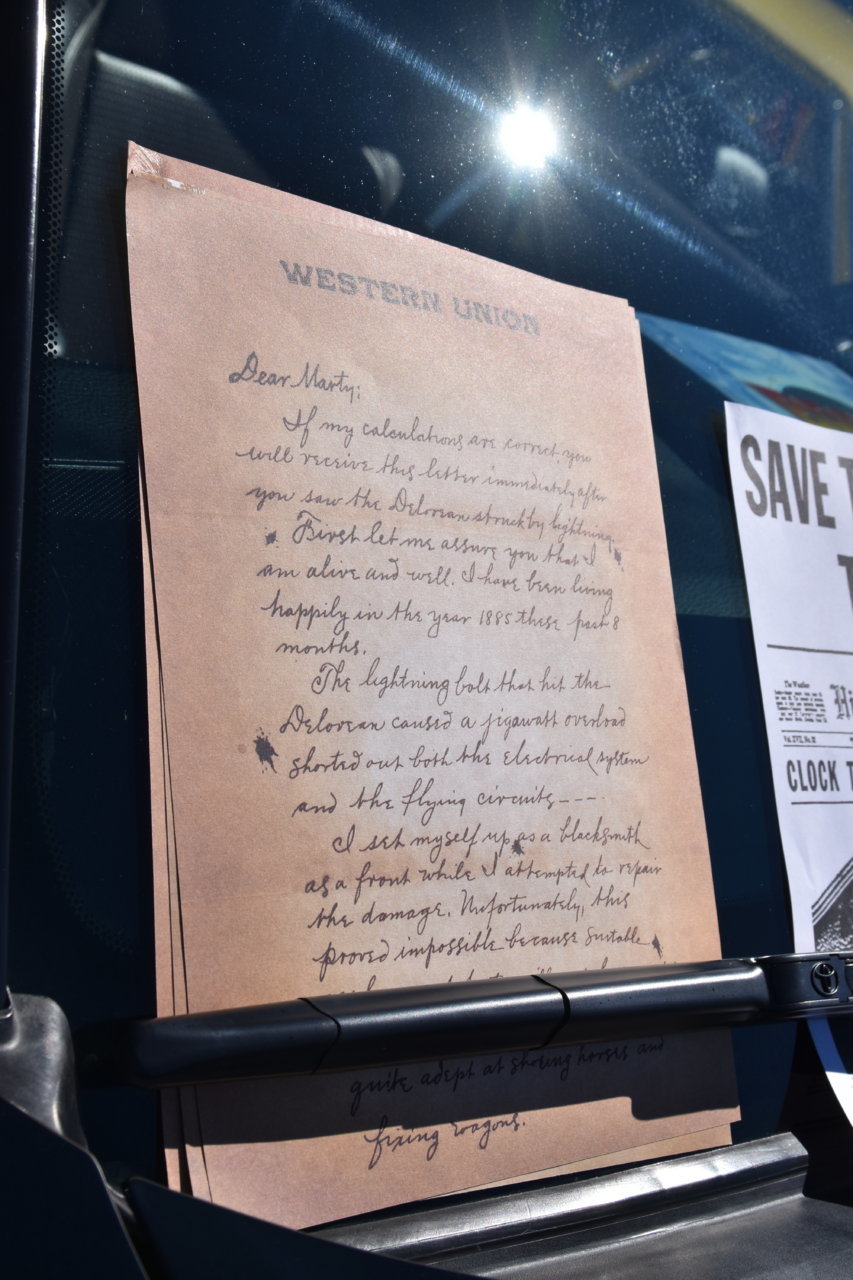 WESTERN UNION
Dear Marty:
If my calculations are correct, you
will receive this letter immediately after
you saw the Delorean struck by lightning.
First let me assure you that I
am alive and well. I have been living
happily in the year 1885 these past 8
months.
The lightning bolt that hit the
Delorean caused a jigawatt overload
shorted out both the electrical system
and the flying circuits----
I set myself up as a blacksmith
as a front while I attempted to repair
the damage. Unfortunately, this
proved impossible because suitable
quite adept at shoeing horses and
fixing wagons.
SAVE T
T
The Weather
Hi
Vol. XVI, No. 22
CLOCK T